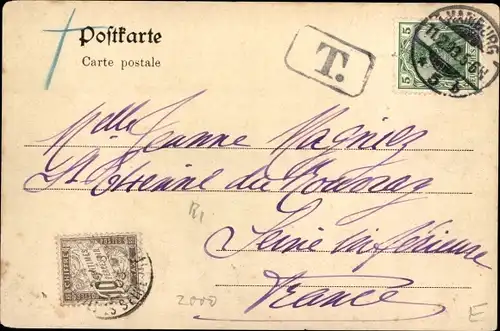 Postkarte
Carte postale
T.
HAMBURG
5 5
Mlle Jeanne Magniez
St Etienne du Rouvray
Seine inférieure
France
10
2000
E